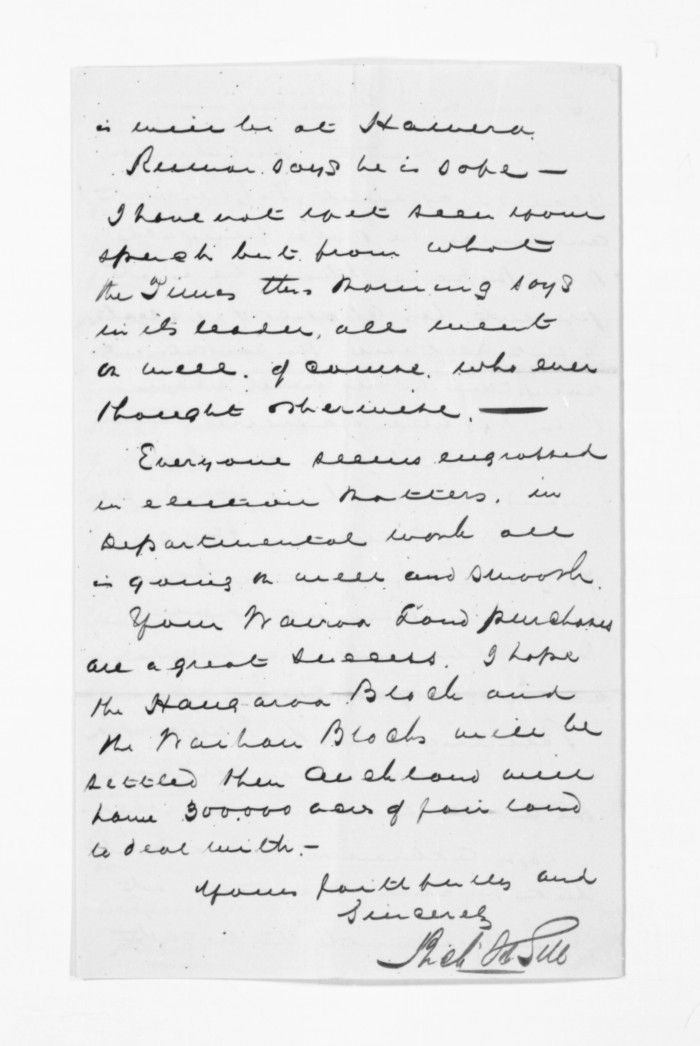 is will be at Hawera
Rumor says he is safe —
I have not yet seen your
speech but from what
the Times this morning says
in its leader, all went
on well. of course. who ever
thought otherwise. —
Everyone seems engrossed
in election matters. in
Departmental work all
is going on well and smooth.
Your Wairoa Land purchases
are a great success. I hope
the Hangaroa Block and
the Waihau Blocks will be
settled then Auckland will
have 300.000 acres of fair land
to deal with. —
Yours faithfully and
Sincerely
Rich Gill